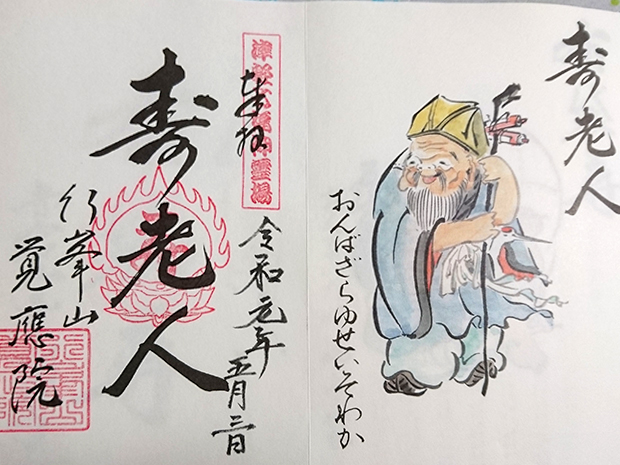 寿老人
おんばざらゆせいそわか
津軽七福神靈場
奉拝
令和元年
五月
寿老人
行峯山
覚應院